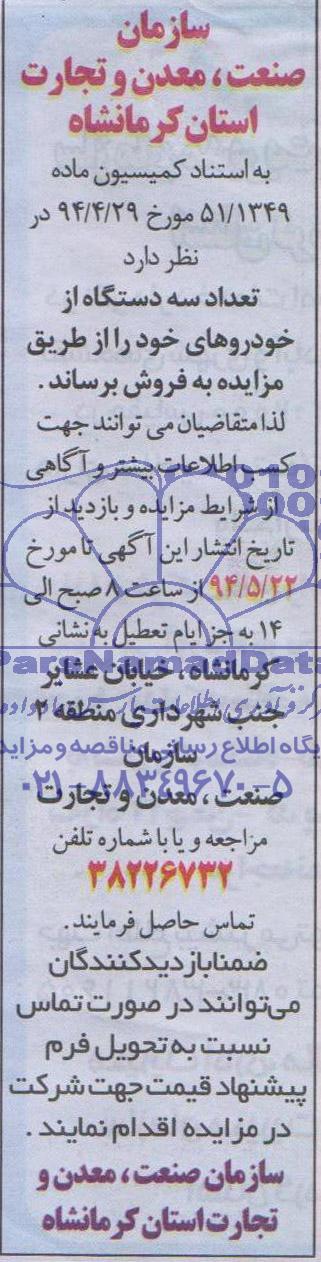 سازمان
صنعت ، معدن و تجارت
استان کرمانشاه
به استناد کمیسیون ماده
۵۱/۱۳۴۹ مورخ ۹۴/۴/۲۹ در
نظر دارد
تعداد سه دستگاه از
خودروهای خود را از طریق
مزایده به فروش برساند .
لذا متقاضیان می توانند جهت
کسب اطلاعات بیشتر و آگاهی
از شرایط مزایده و بازدید از
تاریخ انتشار این آگهی تا مورخ
۹۴/۵/۲۲ از ساعت ۸ صبح الی
۱۴ به جز ایام تعطیل به نشانی
ParsNamadData
کرمانشاه ، خیابان عشایر
جنب شهرداری منطقه ۲
پایگاه اطلاع رسانی مناقصه و مزایده
سازمان
۰۲۱-۸۸۳۴۹۶۷۰-۵
صنعت ، معدن و تجارت
مراجعه و یا با شماره تلفن
۳۸۲۲۶۷۳۲
تماس حاصل فرمایند .
ضمنابازدیدکنندگان
می‌توانند در صورت تماس
نسبت به تحویل فرم
پیشنهاد قیمت جهت شرکت
در مزایده اقدام نمایند .
سازمان صنعت ، معدن و
تجارت استان کرمانشاه